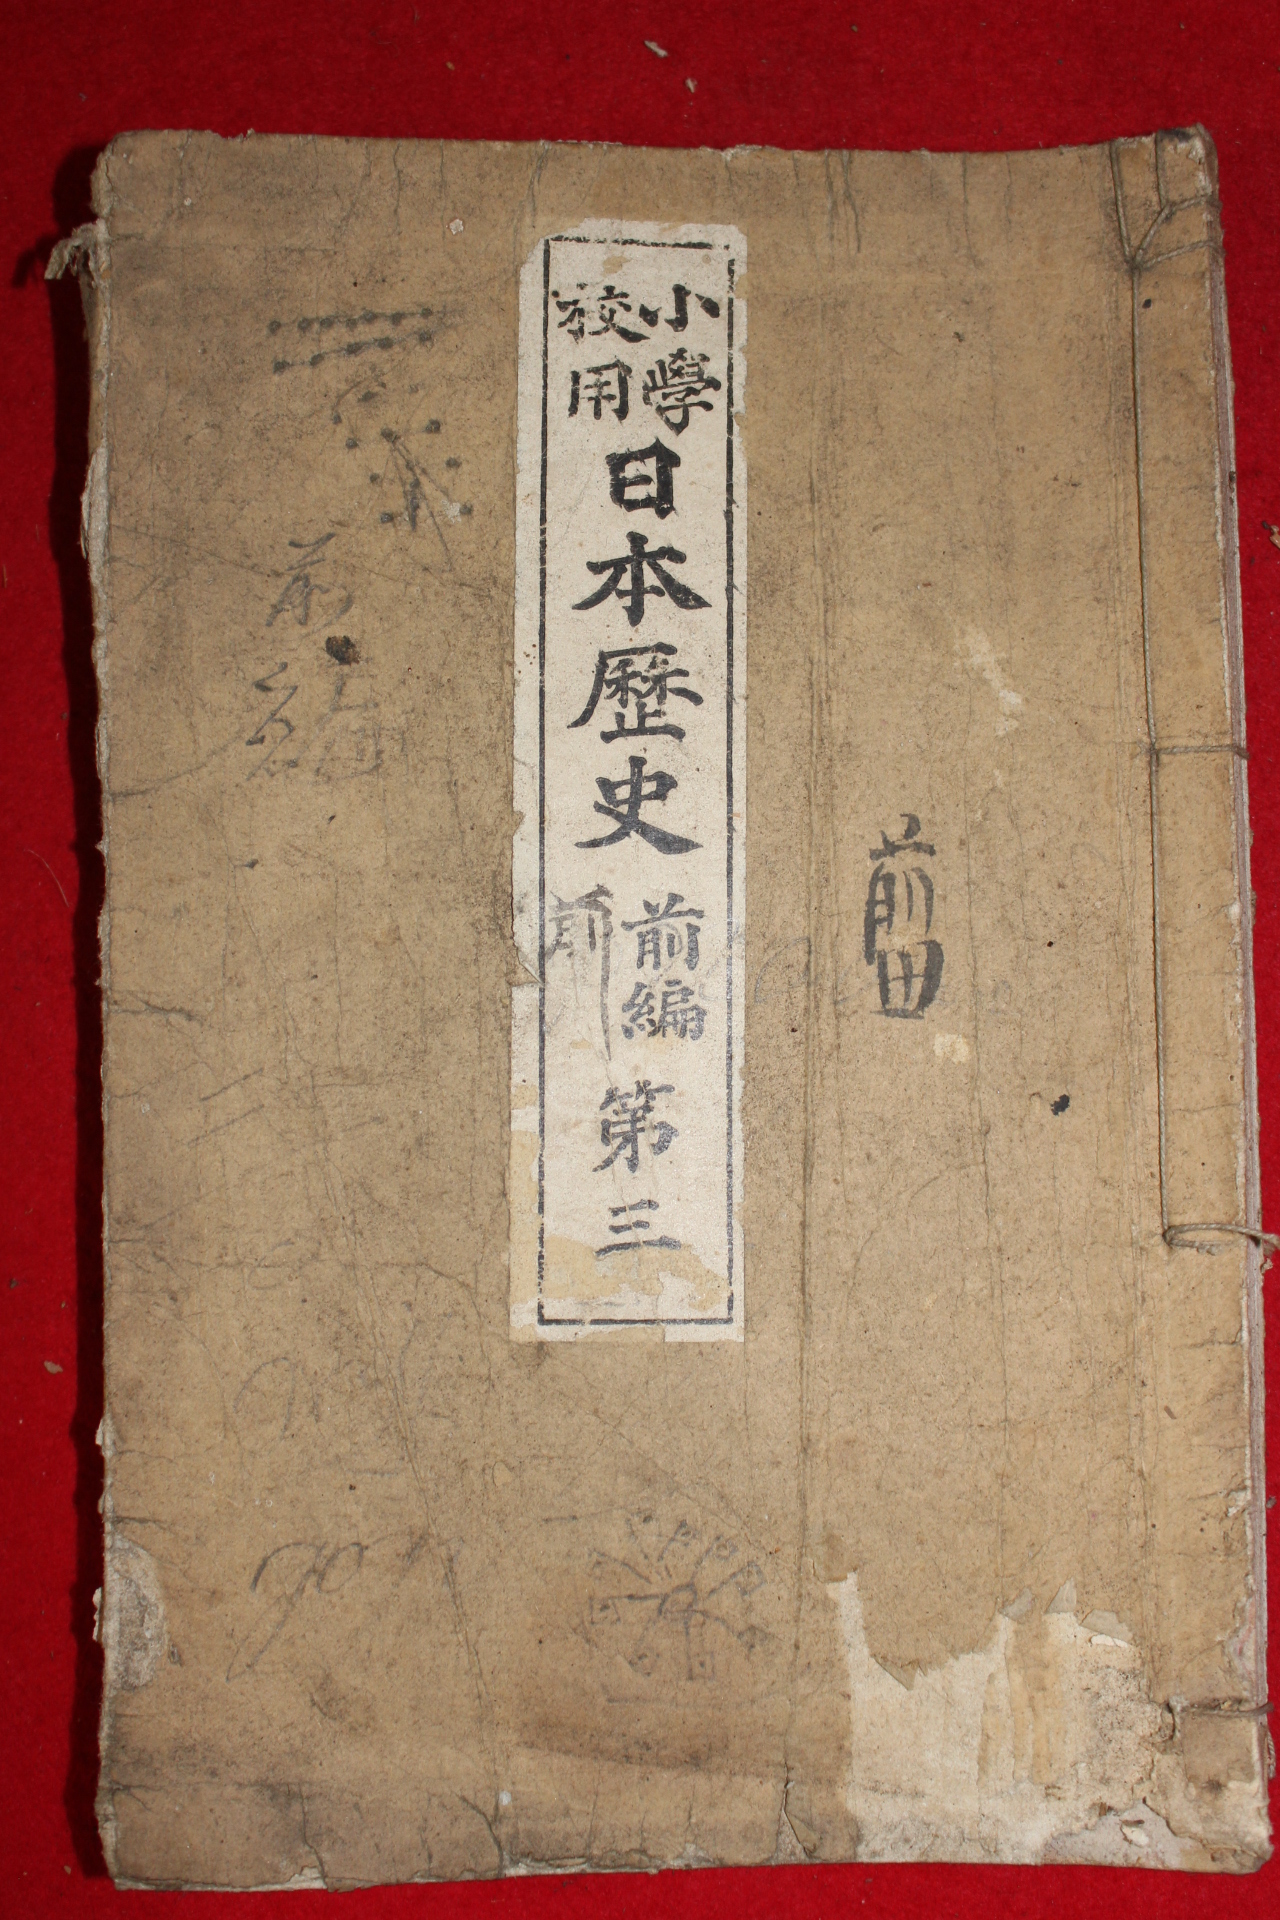 前田
小學
校用
日本歷史
前編
前
第三
前編